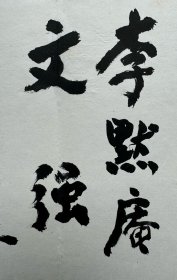 李默庵
文强